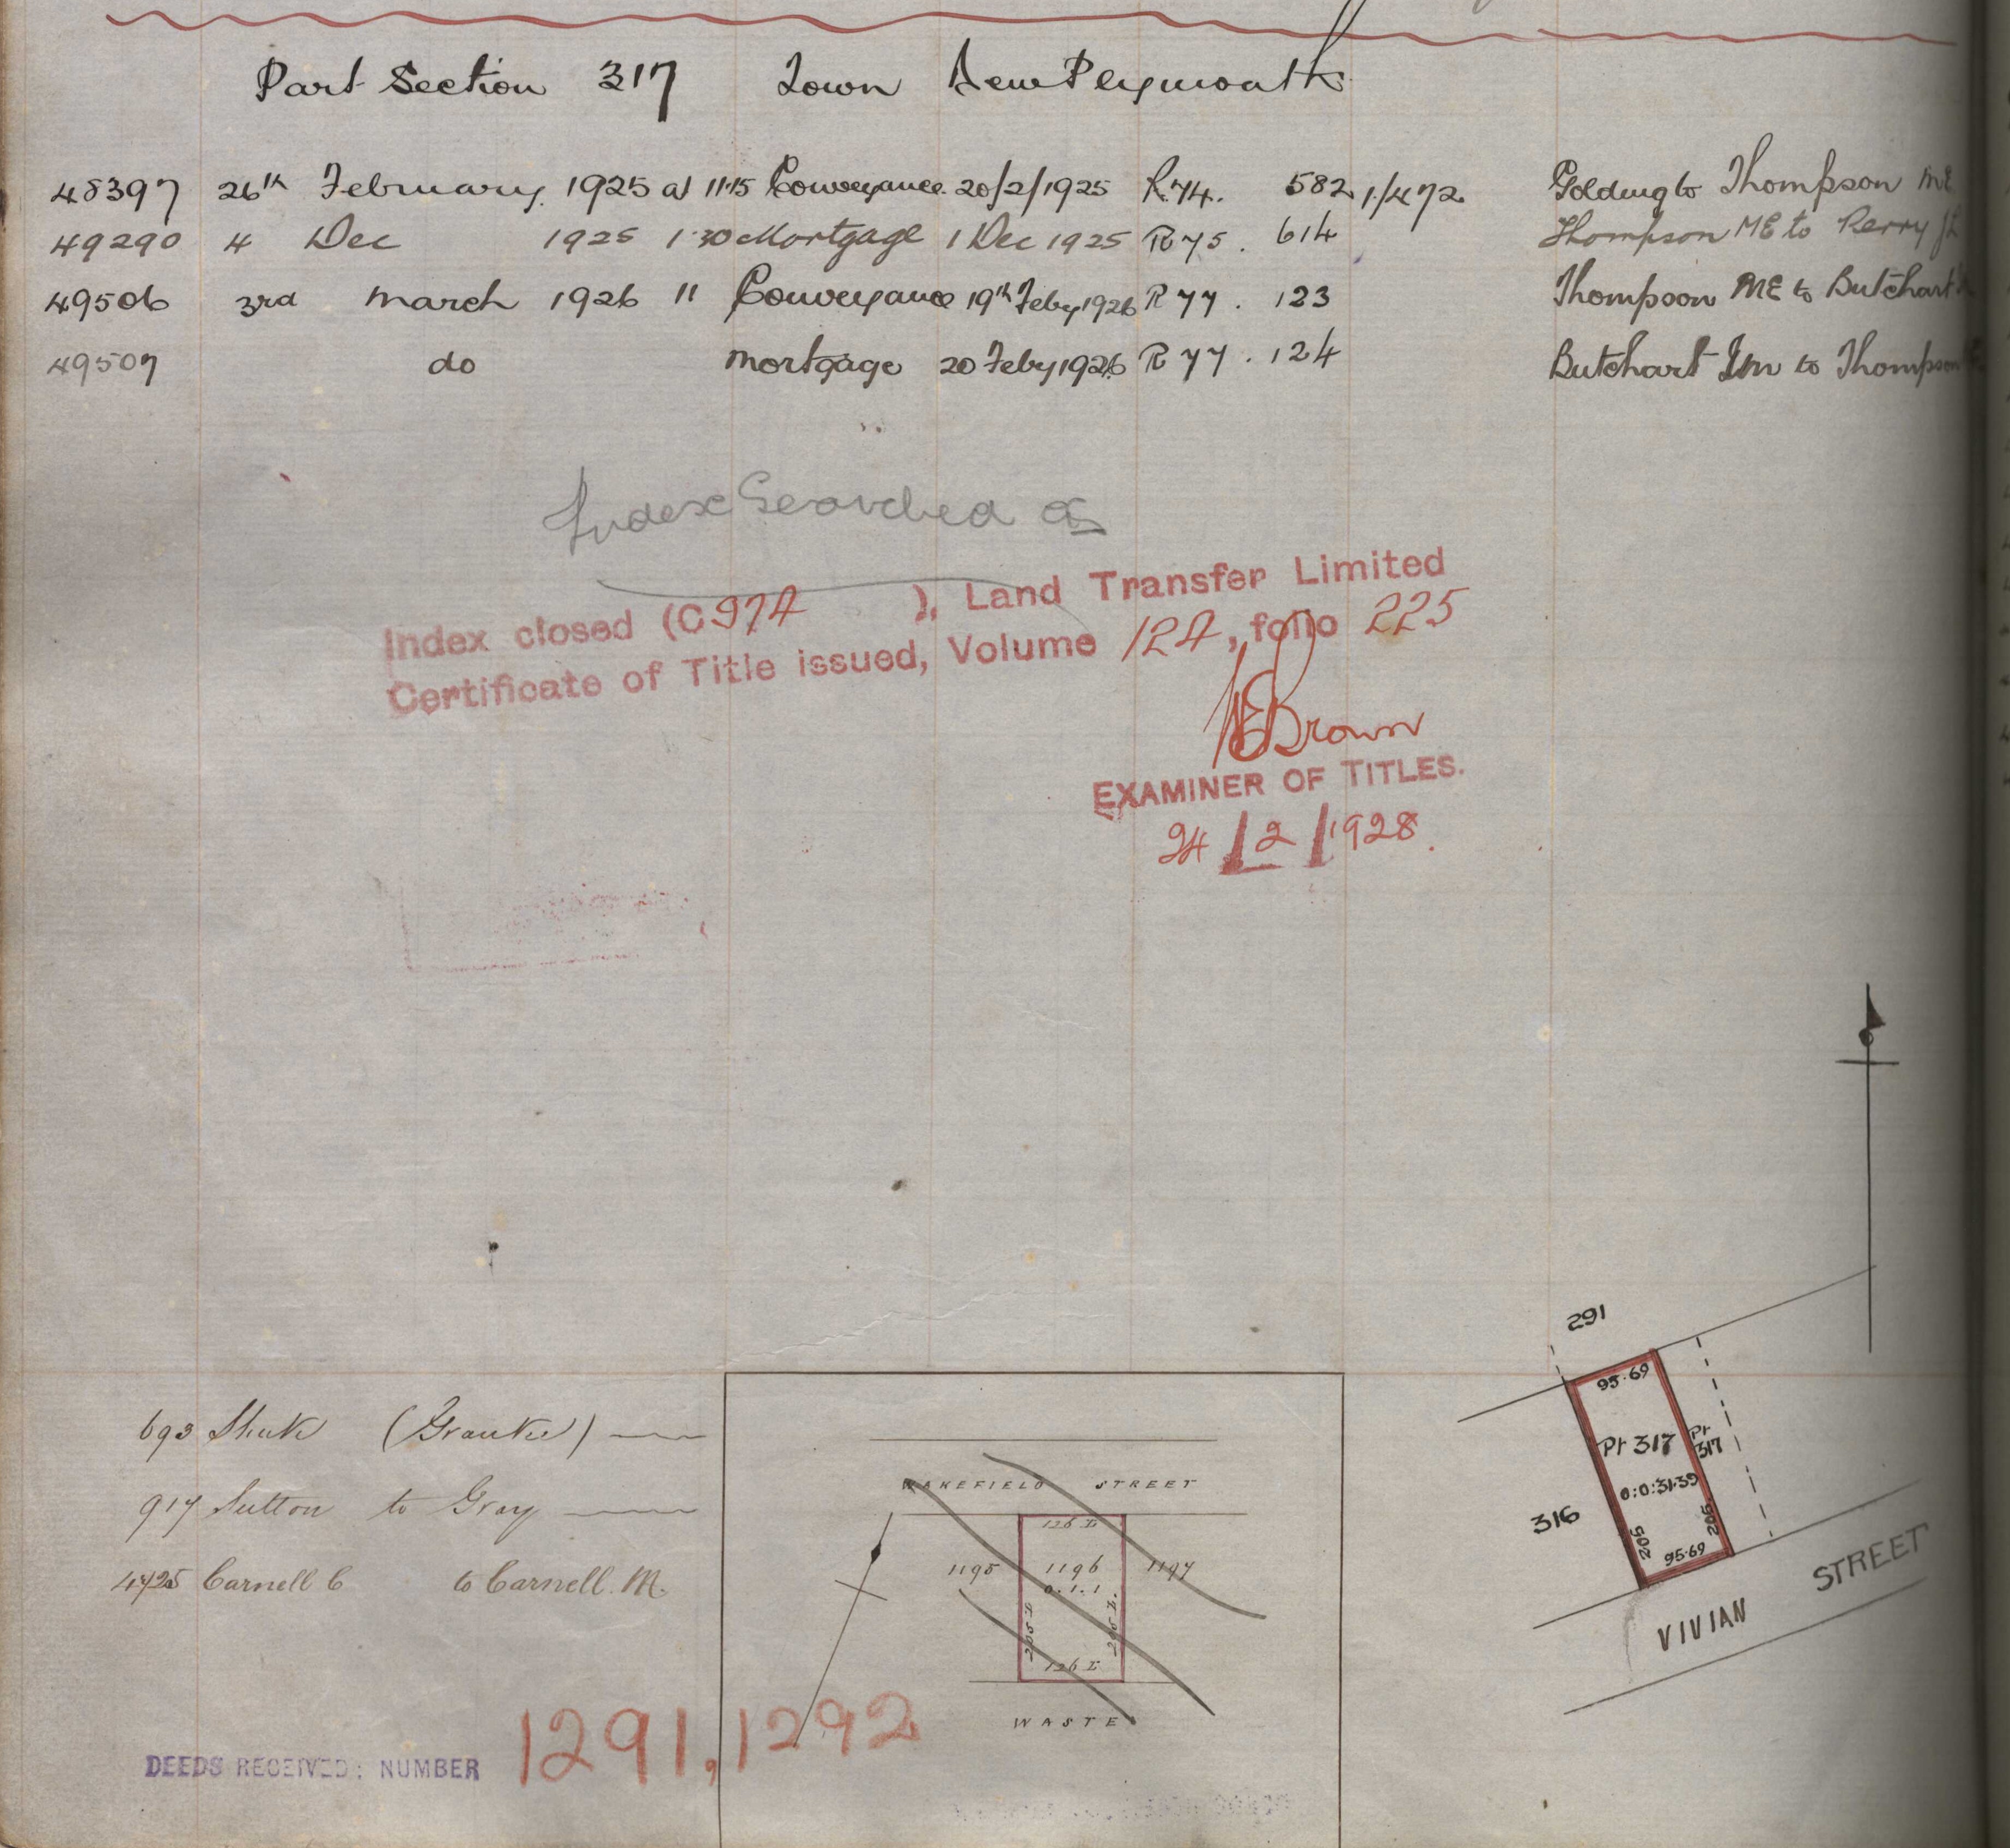 Part Section 317 Town New Plymouth
48397 26th February 1925 at 11.15 Conveyance 20/2/1925 R.74. 582 1/472 Golding to Thompson ME
49290 4 Dec 1925 1.30 Mortgage 1 Dec 1925 R 75. 614 Thompson ME to Perry
49506 3rd March 1926 11 Conveyance 19th Feby 1926 R 77. 123 Thompson ME to Butchart
49507 do Mortgage 20 Feby 1926 R 77. 124 Butchart to Thompson
Index Searched
Index closed (C974 ), Land Transfer Limited
Certificate of Title issued, Volume 124, folio 225
Brown
EXAMINER OF TITLES.
24/2/1928.
291
95.69
Pt 317
Pt
317
0:0:31.39
316
205
205
95.69
VIVIAN STREET
693 Shute
917 Sutton to Gray
4425 Carnell C to Carnell. M.
WAKEFIELD STREET
126 L
1195 1196 1197
0.1.1
205 L
205 L.
126 L
WASTE
DEEDS RECEIVED: NUMBER 1291,1292